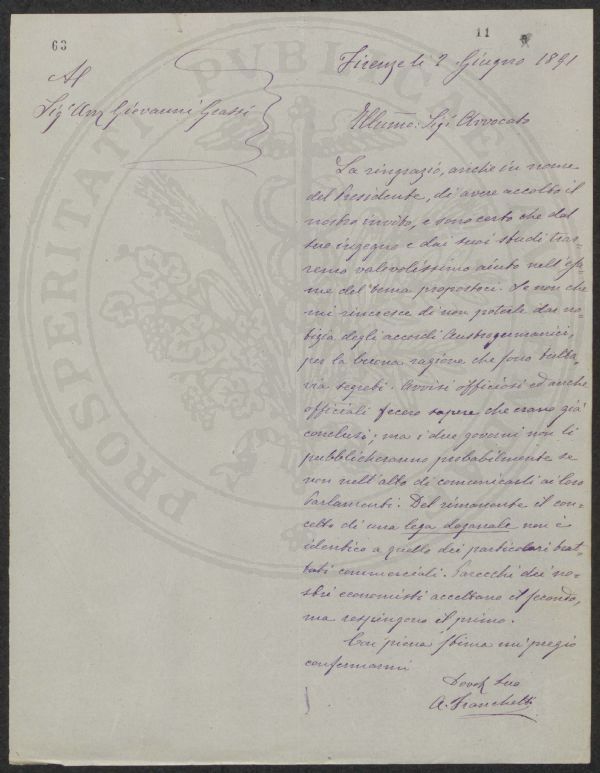 63
11
Firenze li 2 Giugno 1891
Al
Sig.r Avv Giovanni Grassi
Illmo: Sig.r Avvocato
La ringrazio, anche in nome
del Presidente, di avere accolto il
nostro invito, e sono certo che dal
suo ingegno e dai suoi studi trar-
remo valevolissimo aiuto nell'esa-
me del tema propostoci. Se non che
mi rincresce di non poterle dar no-
tizia degli accordi Austrogermanici,
per la buona ragione che sono tutta-
via segreti. Avvisi officiosi ed anche
officiali fecero sapere che erano già
conclusi; ma i due governi non li
pubblicheranno probabilmente se
non nell'atto di comunicarli ai loro
Parlamenti. Del rimanente il con-
cetto di una lega doganale non è
identico a quello dei particolari trat-
tati commerciali. Parecchi dei no-
stri economisti accettano il secondo,
ma respingono il primo.
Con piena stima mi pregio
confermarmi
Devot Suo
A. Franchetti
PROSPERITATI PVBLICAE